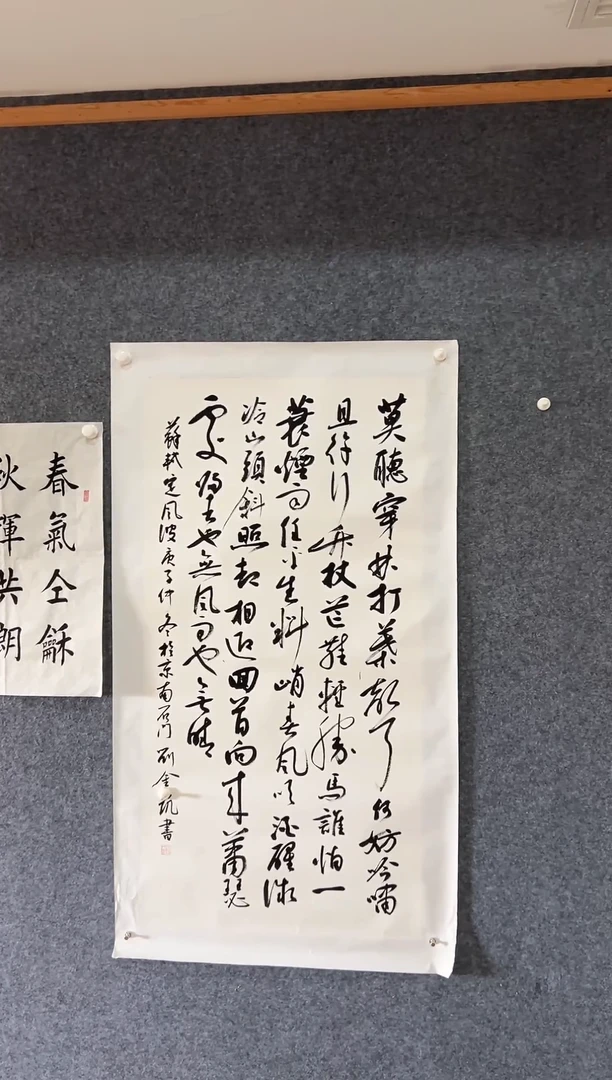 莫聽穿林打葉聲何妨吟嘯
且徐行竹杖芒鞋輕勝馬誰怕一
蓑煙雨任平生料峭春風吹酒醒微
冷山頭斜照却相迎回首向來蕭瑟
處歸去也無風雨也無晴
蘇軾定風波庚子仲冬於京南門劉金書
春氣仝龢
秋暉共朗